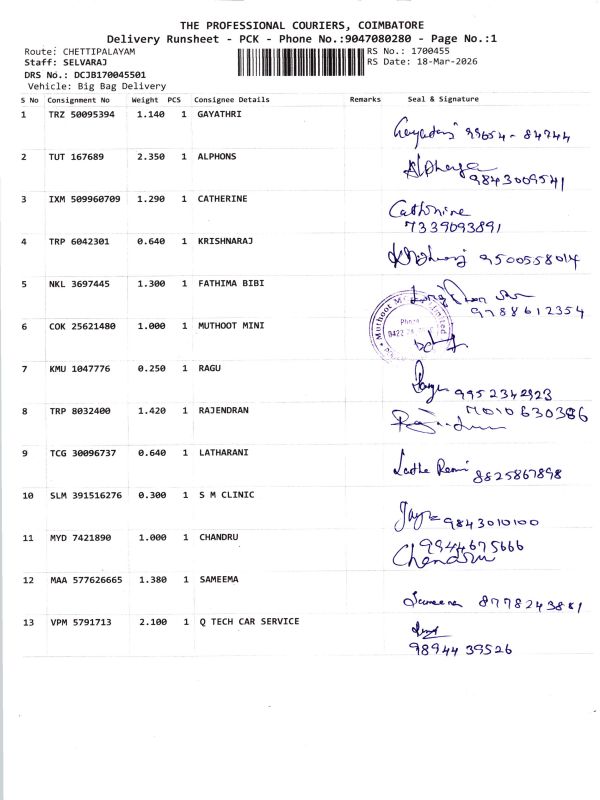 THE PROFESSIONAL COURIERS, COIMBATORE
Delivery Runsheet - PCK - Phone No.:9047080280 - Page No.:1
Route: CHETTIPALAYAM RS No.: 1700455
Staff: SELVARAJ RS Date: 18-Mar-2026
DRS No.: DCJB170045501
Vehicle: Big Bag Delivery
S No Consignment No Weight PCS Consignee Details Remarks Seal & Signature
1 TRZ 50095394 1.140 1 GAYATHRI
99654-84744
2 TUT 167689 2.350 1 ALPHONS
9843009541
3 IXM 509960709 1.290 1 CATHERINE
Cathrine
7339093891
4 TRP 6042301 0.640 1 KRISHNARAJ
9500558014
5 NKL 3697445 1.300 1 FATHIMA BIBI
9788612354
6 COK 25621480 1.000 1 MUTHOOT MINI
Phone
7 KMU 1047776 0.250 1 RAGU
9952342923
8 TRP 8032400 1.420 1 RAJENDRAN
7010630386
9 TCG 30096737 0.640 1 LATHARANI
Latha Rani 8825867898
10 SLM 391516276 0.300 1 S M CLINIC
9843010100
11 MYD 7421890 1.000 1 CHANDRU
9944675666
Chandru
12 MAA 577626665 1.380 1 SAMEEMA
Sameema
13 VPM 5791713 2.100 1 Q TECH CAR SERVICE
98944 39526